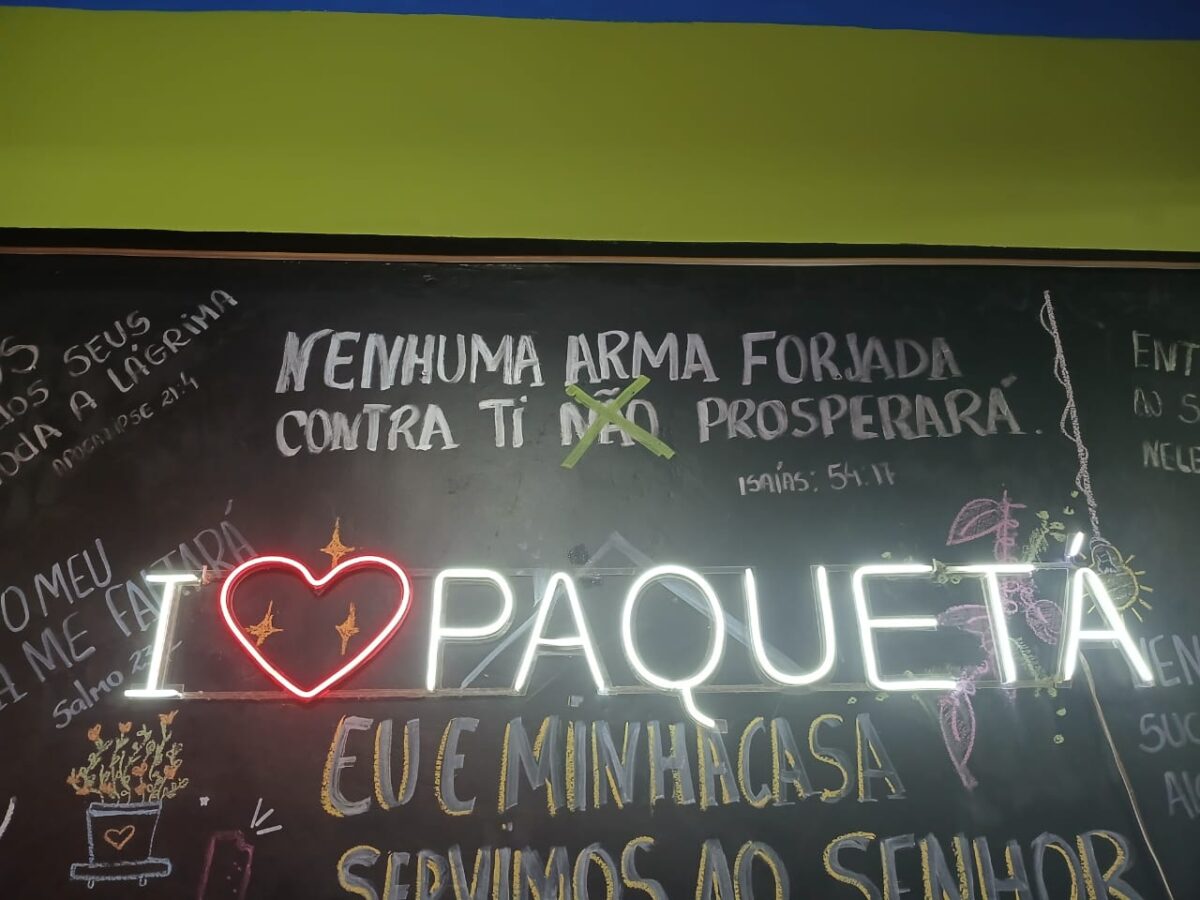 OS
DOS SEUS
TODA A LÁGRIMA
APOCALIPSE 21:4
NENHUMA ARMA FORJADA
CONTRA TI NÃO PROSPERARÁ.
ISAÍAS: 54:17
NELE
O MEU
ME FALTARÁ
Salmo 23
I PAQUETÁ
EU E MINHA CASA
SERVIMOS AO SENHOR